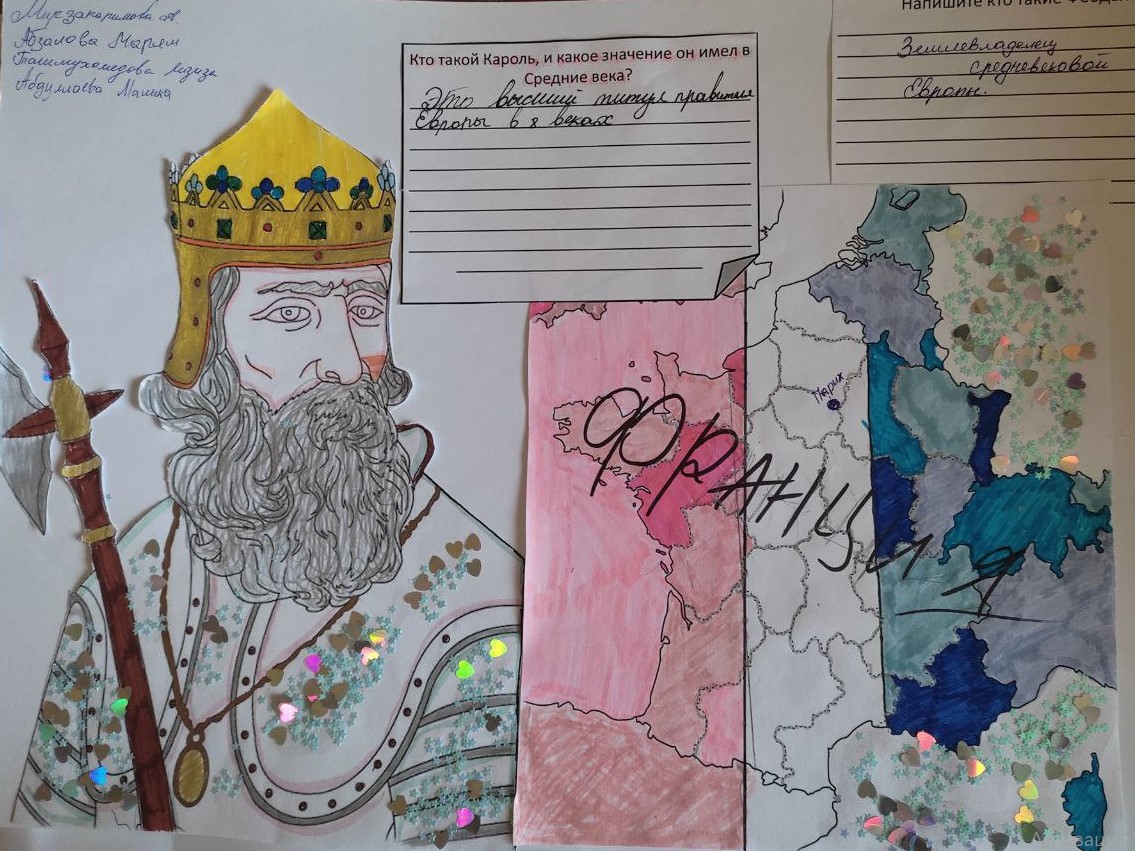 Мирзакаримова
Абзалова Марьям
Ташмухамедова Азиза
Абдуллаева Малика
Кто такой Кароль, и какое значение он имел в
Средние века?
Это высший титул правителя
Европы в 8 веках
Напишите кто такие
Землевладелец
средневековой
Европы.
Париж
Франция